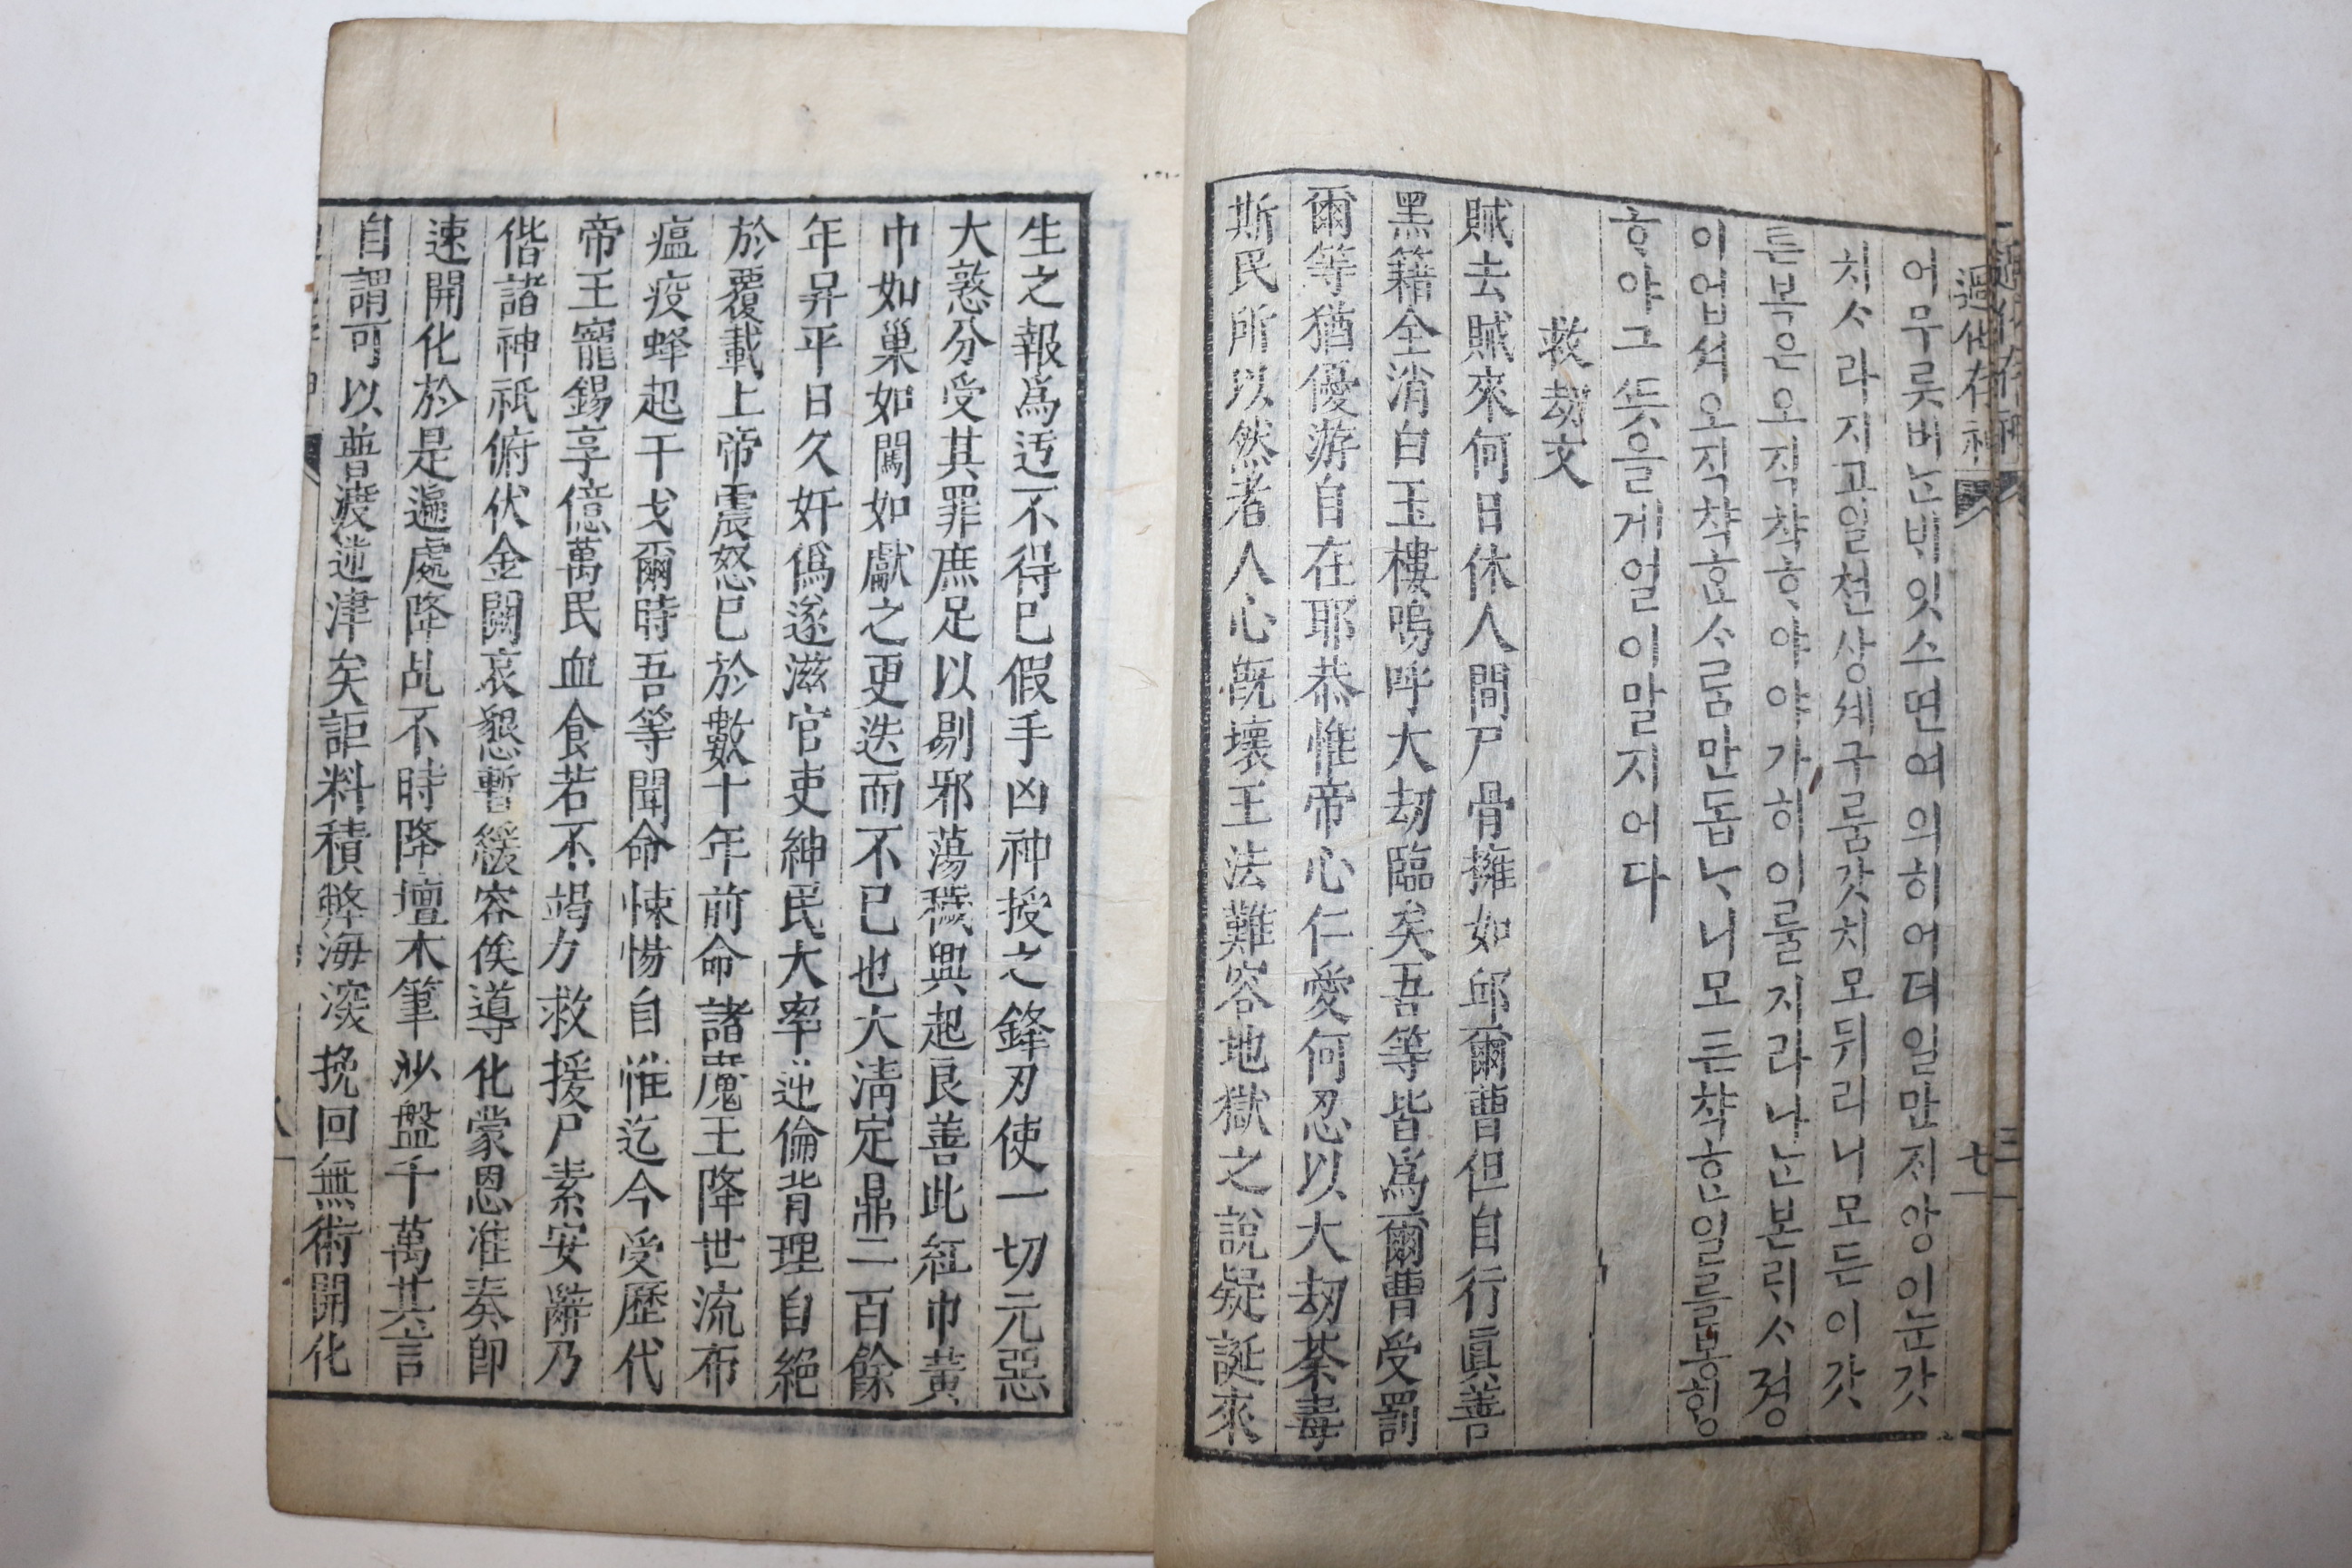 過化存神
七
어무릇비ᄂᆞᆫᄇᆡ잇스면여의히어더일만ᄌᆡ앙이눈갓
치ᄉᆞ라지고일쳔샹셰구룸갓치모뒤리니모든이갓
튼복은오직챡ᄒᆞ야야가히이룰지라나ᄂᆞᆫ본ᄅᆡᄉᆞ졍
이업셔오직챡ᄒᆞᆫᄉᆞ룸만돕ᄂᆞ니모든챡ᄒᆞᆫ일를봉ᄒᆡᆼ
ᄒᆞ야그ᄯᅳᆺ을게얼이말지어다
救刼文
賊去賊來何日休人間尸骨擁如邱爾曹但自行眞善
黑籍全消白玉樓嗚呼大刼臨矣吾等皆爲爾曹受罰
爾等猶優游自在耶恭惟帝心仁愛何忍以大刼荼毒
斯民所以然者人心旣壞王法難容地獄之說疑誕來
生之報爲迃不得已假手凶神授之鋒刃使一切元惡
大憝分受其罪庶足以剔邪蕩穢興起良善此紅巾黃
巾如巢如闖如獻之更迭而不已也大淸定鼎二百餘
年昇平日久奸僞遂滋官吏紳民大率逆倫背理自絕
於覆載上帝震怒已於數十年前命諸魔王降世流布
瘟疫蜂起干戈爾時吾等聞命悚惕自惟迄今受歷代
帝王寵錫享億萬民血食若不竭力救援尸素安辭乃
偕諸神祇俯伏金闕哀懇暫緩容俟導化蒙恩准奏卽
速開化於是遍處降乩不時降壇木筆沙盤千萬其言
自謂可以普渡迷津矣詎料積弊海深挽回無術開化